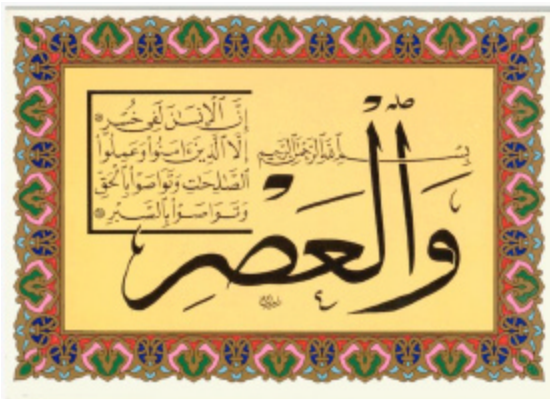 بسم الله الرحمن الرحيم
وَالْعَصْرِ
إِنَّ ٱلْإِنسَٰنَ لَفِى خُسْرٍ
إِلَّا ٱلَّذِينَ ءَامَنُوا۟ وَعَمِلُوا۟
ٱلصَّٰلِحَٰتِ وَتَوَاصَوْا۟ بِٱلْحَقِّ
وَتَوَاصَوْا۟ بِٱلصَّبْرِ